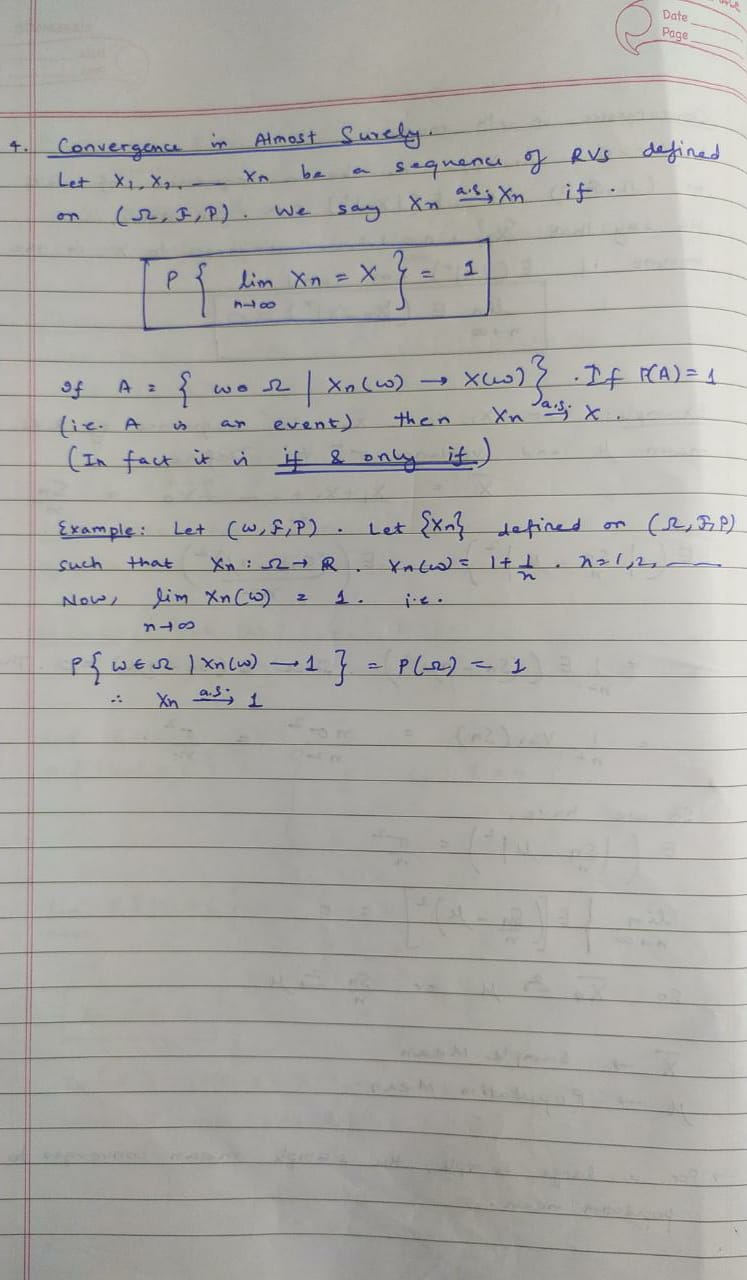 Date
Page
4. Convergence in Almost Surely.
Let X₁, X₂, — Xn be a sequence of RVS defined
on (Ω, F, P). We say Xn a.s.→ Xn if.
P { lim n→∞ Xn = X } = 1
If A = { ω ∈ Ω | Xn(ω) → X(ω) }. If P(A) = 1
(i.e. A is an event) then Xn a.s.→ X.
(In fact it is if & only if)
Example: Let (ω, F, P). Let {Xn} defined on (Ω, F, P)
such that Xn : Ω → R. Xn(ω) = 1 + 1/n. n = 1, 2, —
Now, lim n→∞ Xn(ω) = 1. i.e.
P { ω ∈ Ω | Xn(ω) → 1 } = P(Ω) = 1
∴ Xn a.s.→ 1